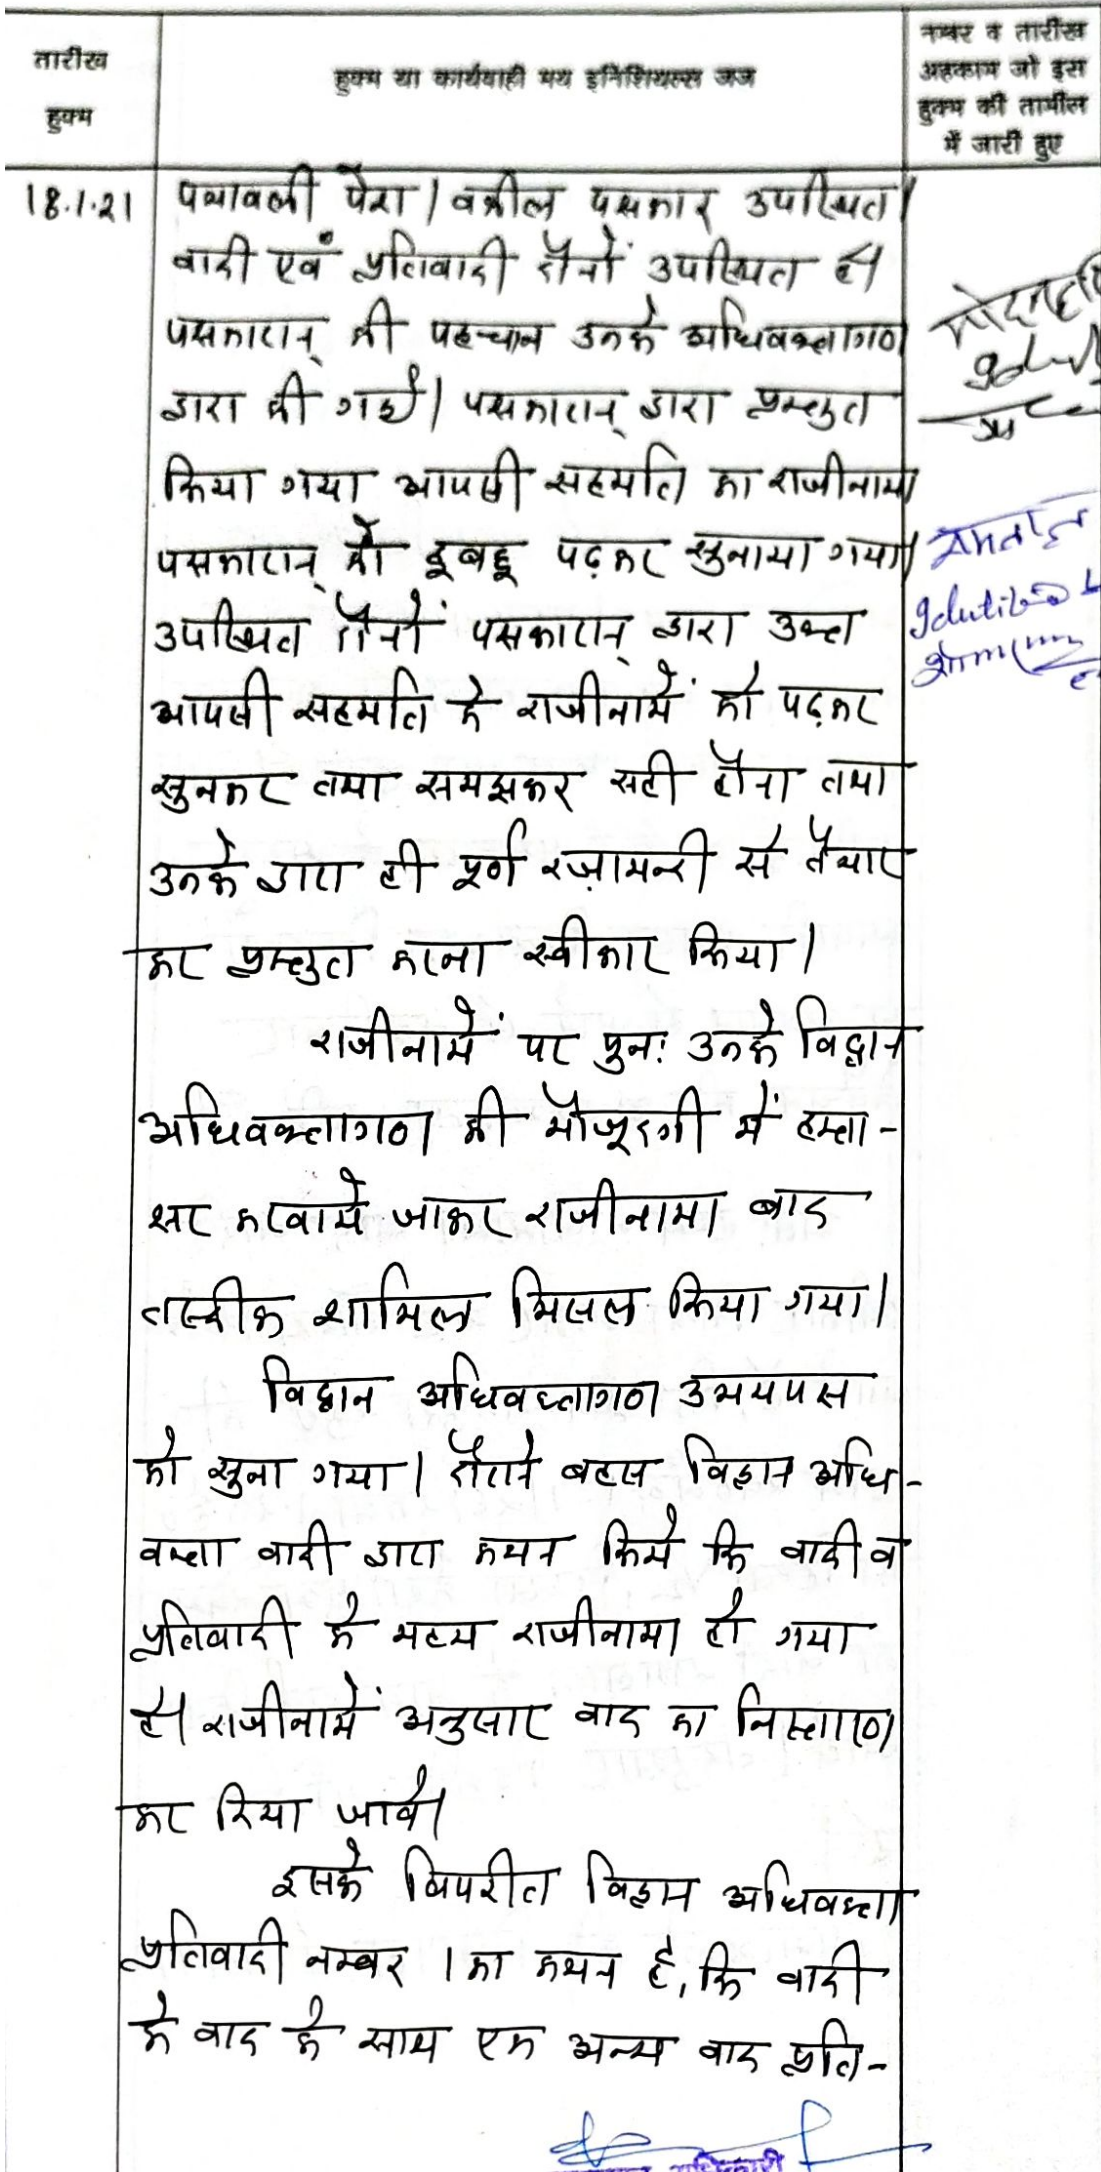 तारीख
हुक्म
हुक्म या कार्यवाही मय इनिशियल्स जज
नम्बर व तारीख
अहकाम जो इस
हुक्म की तामील
में जारी हुए
18.1.21
पत्रावली पेश। वकील पक्षकार उपस्थित।
वादी एवं प्रतिवादी दोनों उपस्थित है।
पक्षकारान् की पहचान उनके अधिवक्तागण
द्वारा की गई। पक्षकारान् द्वारा प्रस्तुत
किया गया आपसी सहमति का राजीनामा
पक्षकारान् को हूबहू पढ़कर सुनाया गया।
उपस्थित दोनों पक्षकारान् द्वारा उक्त
आपसी सहमति के राजीनामें को पढ़कर
सुनकर तथा समझकर सही होना तथा
उनके द्वारा ही पूर्ण रज़ामन्दी से तैयार
कर प्रस्तुत करना स्वीकार किया।
राजीनामें पर पुन: उनके विद्वान
अधिवक्तागण की मौजूदगी में हस्ता-
क्षर करवाये जाकर राजीनामा बाद
तस्दीक शामिल मिसल किया गया।
विद्वान अधिवक्तागण उभयपक्ष
को सुना गया। दौराने बहस विद्वान अधि-
वक्ता वादी द्वारा कथन किये कि वादी व
प्रतिवादी के मध्य राजीनामा हो गया
है। राजीनामें अनुसार वाद का निस्तारण
कर दिया जावे।
इसके विपरीत विद्वान अधिवक्ता
प्रतिवादी नम्बर 1 का कथन है, कि वादी
के वाद के साथ एक अन्य वाद प्रति-
अधिकारी